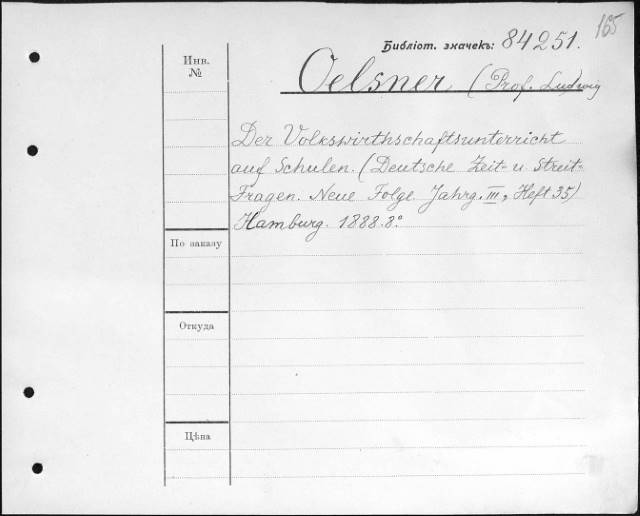 165
Библіот. значекъ: 84251.
Инв.
№
Oelsner (Prof. Ludwig
Der Volkswirthschaftsunterricht
auf Schulen. (Deutsche Zeit- u. Streit-
Fragen. Neue Folge. Jahrg. III, Heft 35)
Hamburg. 1888. 8°
По заказу
Откуда
Цѣна